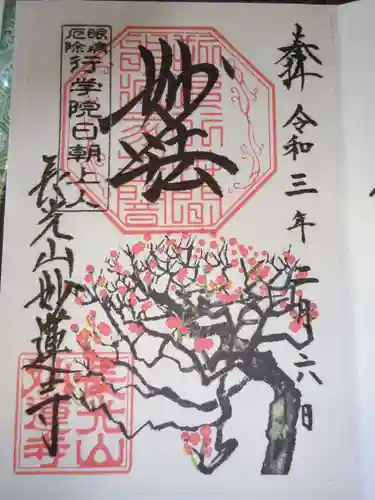 奉拝 令和三年二月六日
妙法
眼病
厄除
行学院日朝上人
長光山妙蓮寺
長光山
妙蓮寺